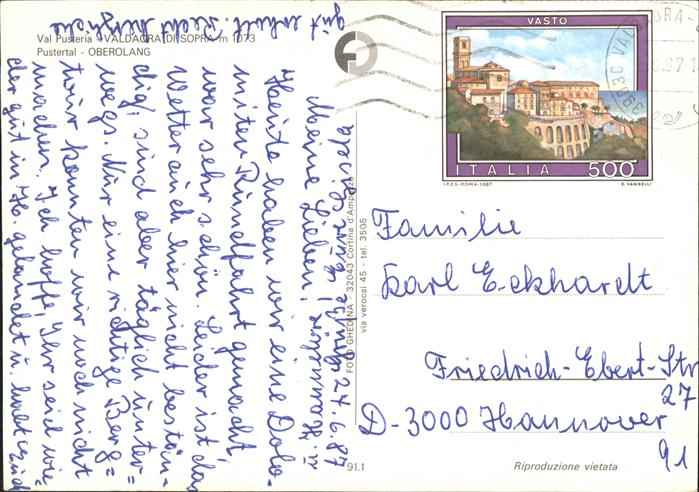 Val Pusteria - VALDAORA DI SOPRA m 1073
Pustertal - OBEROLANG
VASTO
ITALIA 500
I.P.Z.S.-ROMA-1987 E. VANGELLI
24.6.87
Meine Lieben!
Heute haben wir eine Dolo-
mitenrundfahrt gemacht,
war sehr schön. Leider ist das
Wetter auch hier nicht bestän-
dig, sind aber täglich unter=
wegs. Nur eine richtige Berg=
tour konnten wir noch nicht
machen. Ich hoffe, Ihr seid wie-
der gut in H. gelandet u. habt Euch
gut erholt. Recht herzliche
FOTO GHEDINA - 32043 Cortina d'Ampezzo
via verocai 45 - tel. 3505
Familie
Karl Eckhardt
Friedrich-Ebert-Str
27
D-3000 Hannover
91
91.1
Riproduzione vietata